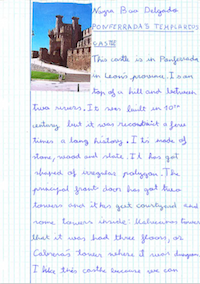 Nayra Bao Delgado
PONFERRADA'S TEMPLARIUS
CASTLE
This castle is in Ponferrada
in León's province. Is on
top of a hill and between
two rivers. It was built in 10th
century but it was a few
times a long history. It is made of
stone, wood and slate. It has got
shaped of irregular polygon. The
principal front door has got two
towers and it has got courtyard and
some towers inside: tower
that it was had three floors, or
Cabrera's tower where it was dungeon
I like this castle because we can